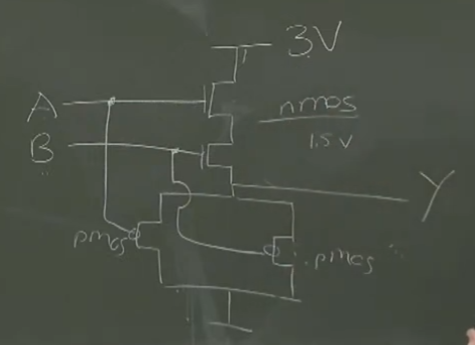 3V
A
nmos
B
1.5 V
Y
pmos
pmos